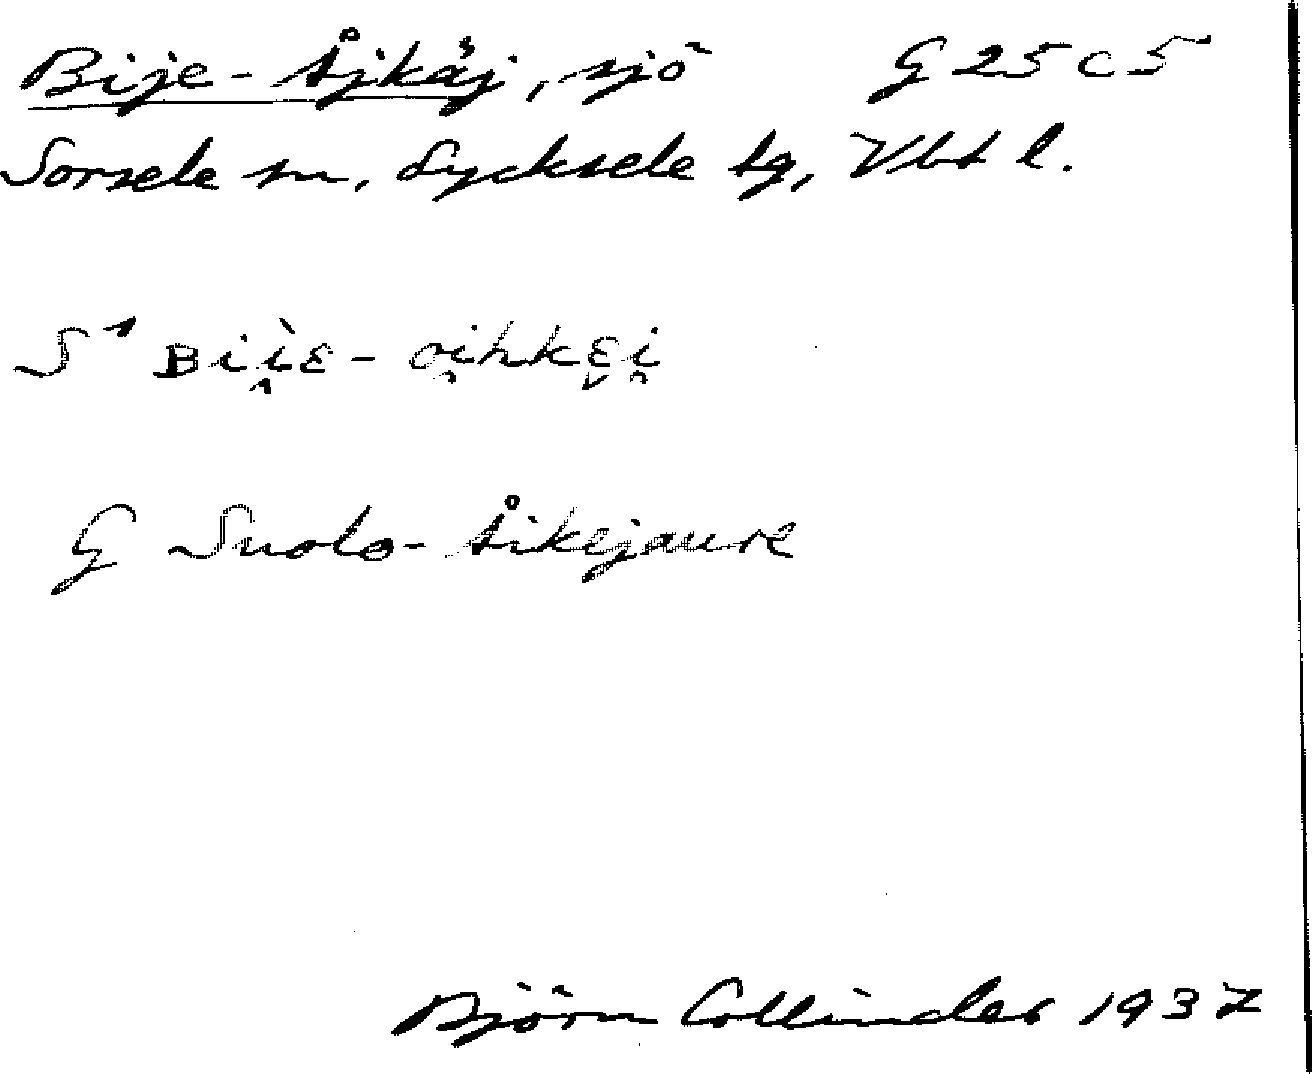 Bije-Åjkåj, sjö G 25 C 5
Sorsele sn, Lycksele lg, Vbt l.
S¹ ʙiì̭ɛ-oi̯hkɛ̬i̯
G Suolo-Åikejaure
Björn Collinder 1937